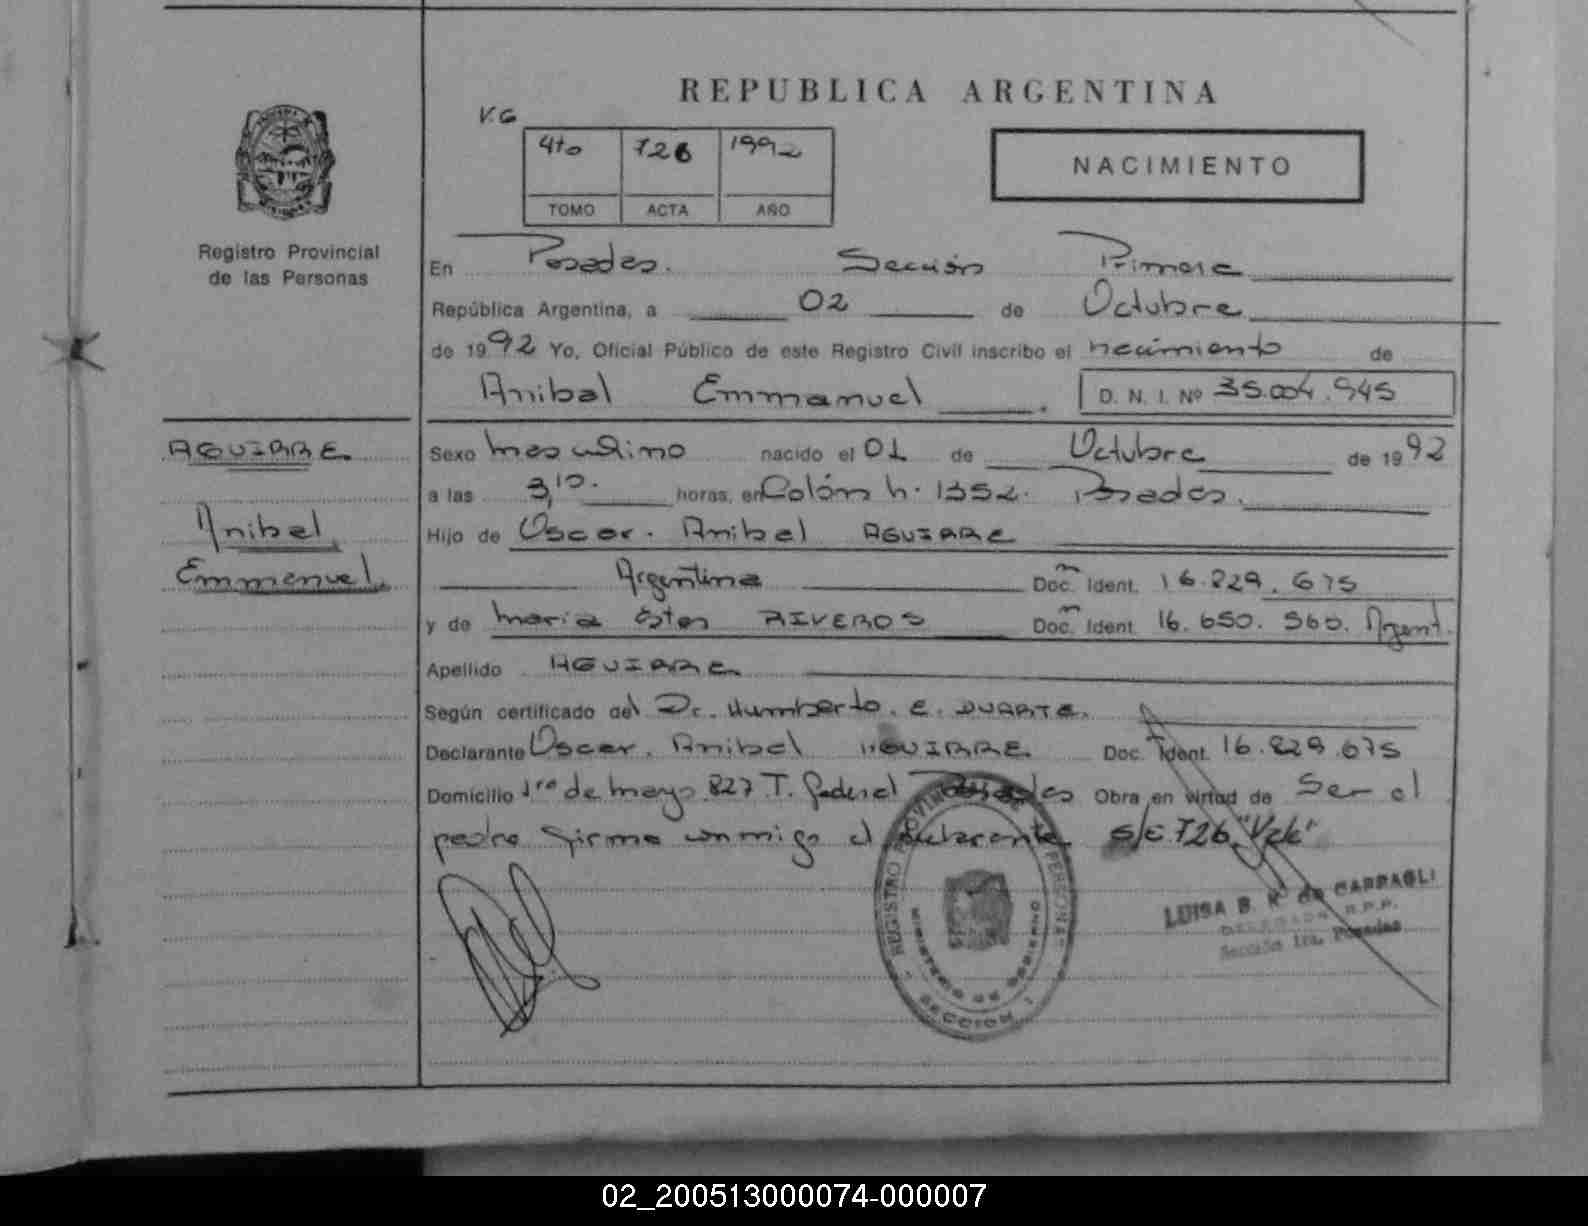 REPUBLICA ARGENTINA
V.G
4to 726 1992
TOMO ACTA AÑO
NACIMIENTO
Registro Provincial
de las Personas
En Posadas. Sección Primera
República Argentina, a 02 de Octubre
de 1992 Yo, Oficial Público de este Registro Civil inscribo el nacimiento de
Anibal Emmanuel. D. N. I. Nº 35.004.945
AGUIRRE
Anibal
Emmanuel
Sexo masculino nacido el 01 de Octubre de 1992
a las 3,10. horas, en Colón h. 1352. Posadas.
Hijo de Oscar. Anibal AGUIRRE
Argentina Doc. m Ident. 16.829.675
y de Maria Ester RIVEROS Doc. m Ident. 16.650.560. Argent.
Apellido AGUIRRE
Según certificado del Dr. Humberto. E. DUARTE.
Declarante Oscar. Anibal AGUIRRE Doc. Ident. 16.829.675
Domicilio 1ro de mayo 827 T. federal Posadas Obra en virtud de Ser el
padre firma conmigo el declarante s/e 726 "Vale"
REGISTRO PROVINCIAL DE LAS PERSONAS
MINISTERIO DE GOBIERNO
SECCION 1
LUISA B. K. de CARPAGLI
DELEGADA R.P.P.
Sección 1ra. Posadas
02_200513000074-000007